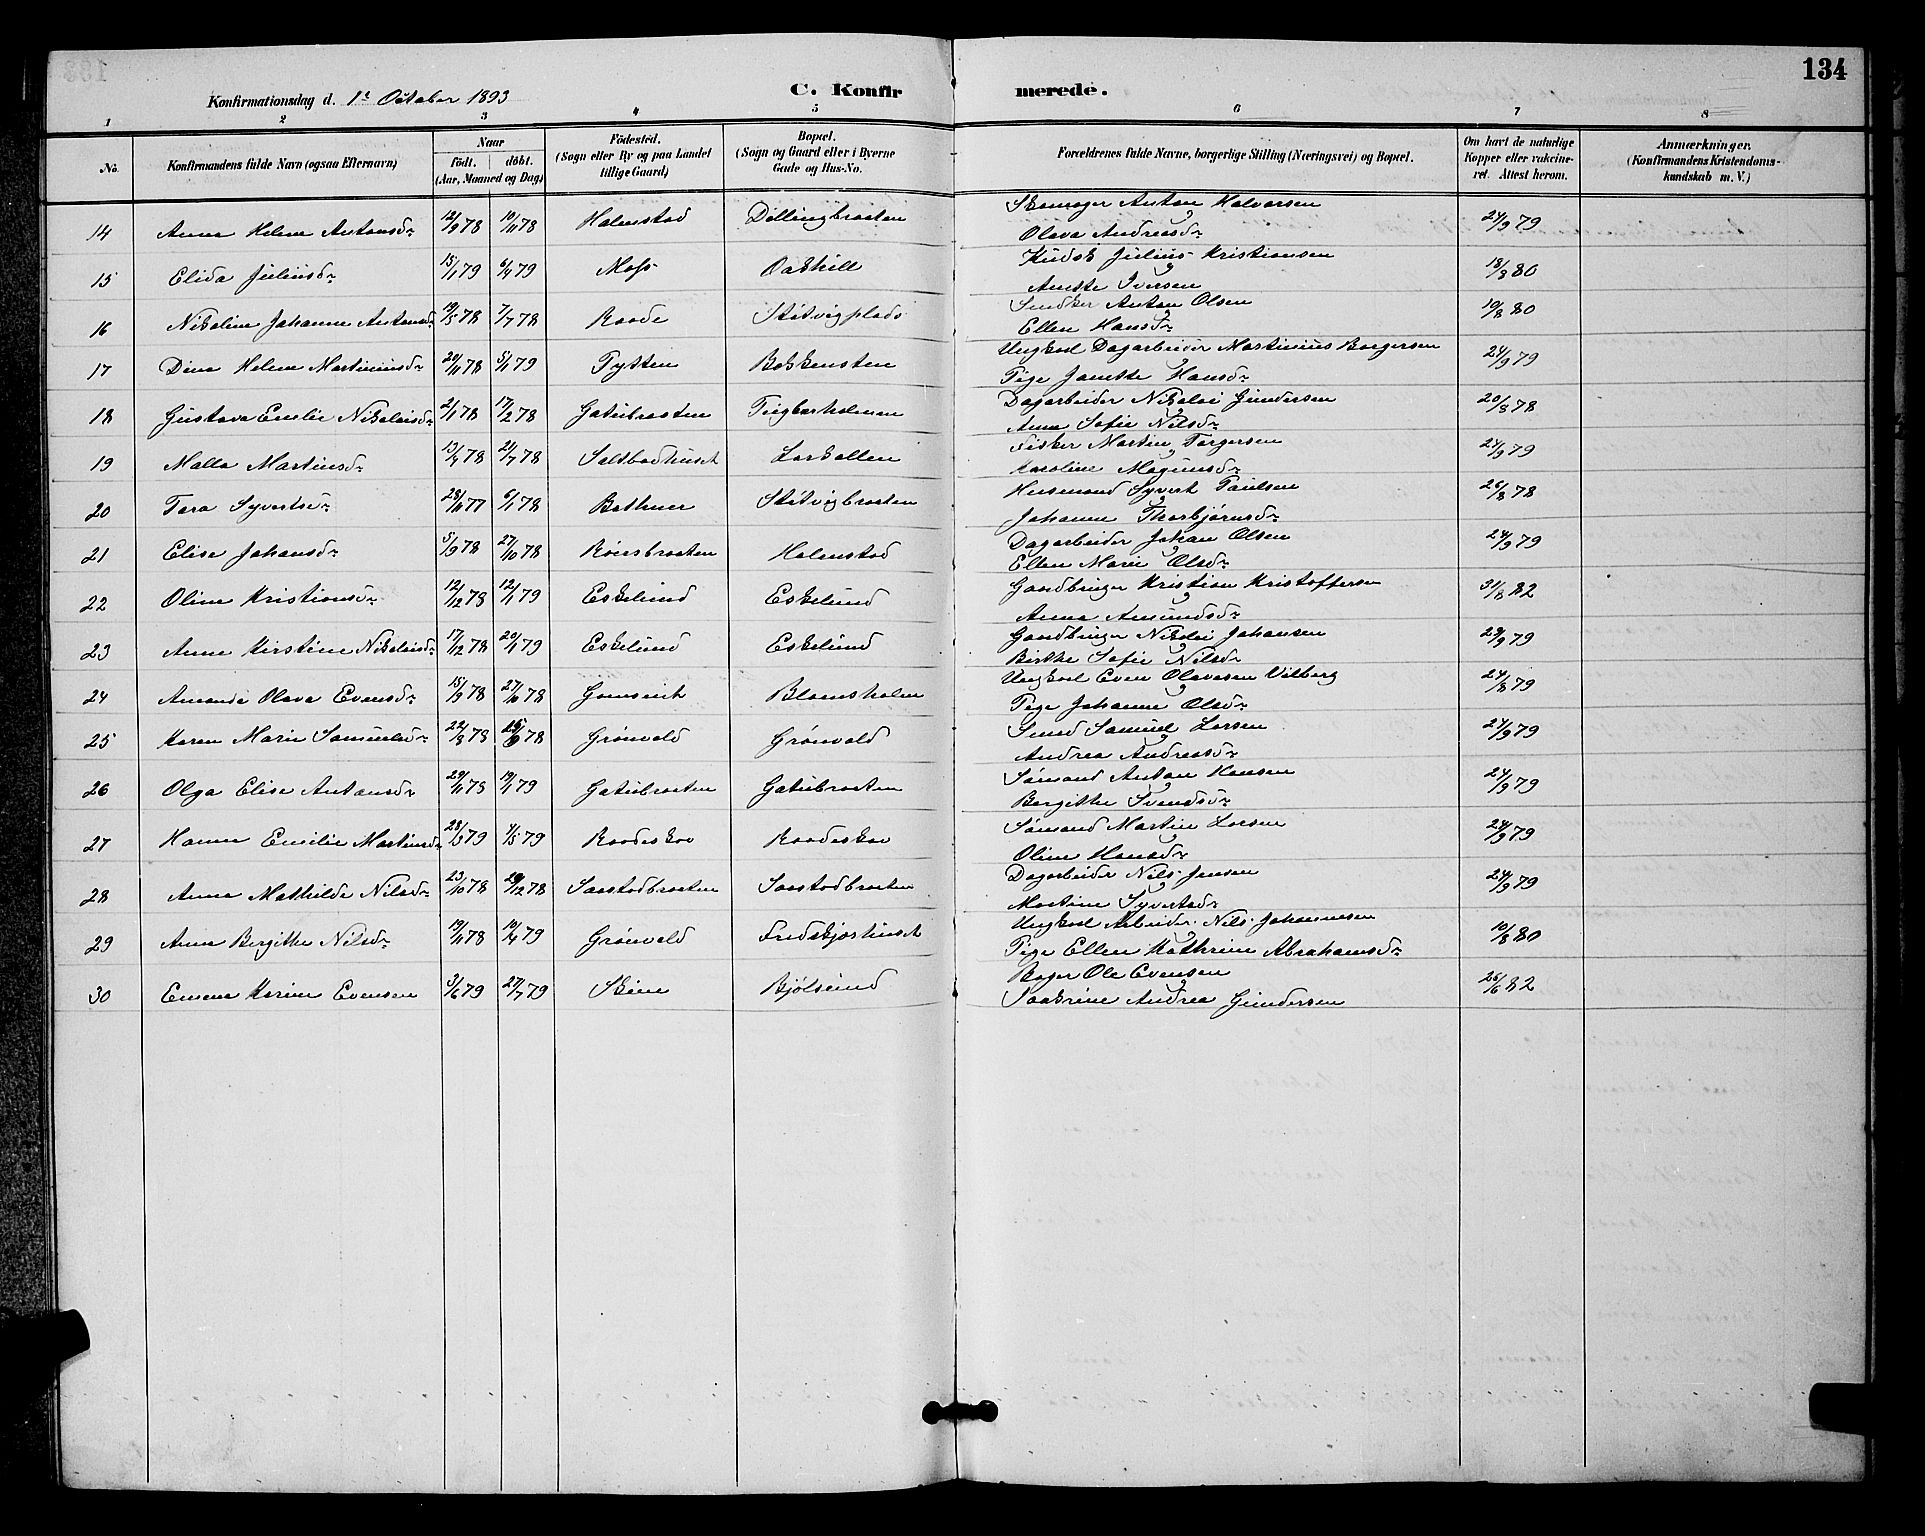 134
Konfirmationsdag d. 1ste October 1893
C. Konfirmerede.
1 2 3 4 5 6 7 8
No. Konfirmandens fulde Navn (ogsaa Efternavn) Naar født. døbt. (Aar, Maaned og Dag) Födested. (Sogn eller By og paa Landet tillige Gaard) Bopæl. (Sogn og Gaard eller i Byerne Gade og Hus-No. Forældrenes fulde Navne, borgerlige Stilling (Næringsvei) og Bopæl. Om havt de naturlige Kopper eller vakcineret. Attest herom. Anmærkninger. (Konfirmandens Kristendomskundskab m. V.)
14 Anna Helene Antonsdr 12/9 78 10/11 78 Halmstad Dillingbraaten Skomager Anton Halvorsen 24/9 79
Olava Andreasdr
15 Elida Juliusdr 15/1 79 6/4 79 Moss Oakhill Kudsk Julius Kristiansen 18/3 80
Anette Iversen
16 Nikoline Johanne Antonsdr 19/5 78 7/7 78 Raade Støtvigplads Snedker Anton Olsen 19/8 80
Ellen Hansdr
17 Dina Helene Martiniusdr 20/11 78 5/1 79 Tytten Bakkensten Ungkarl Dagarbeider Martinius Borgersen 24/9 79
Pige Janette Hansdr
18 Gustava Emilie Nikolaisdr 2/1 78 17/2 78 Gatubraaten Tiegberholmen Dagarbeider Nikolai Gundersen 20/8 78
Anna Sofie Nilsdr
19 Malla Martinsdr 13/4 78 21/7 78 Saltbodhuset Larkollen Fisker Martin Torgersen 24/9 79
Karoline Magnusdr
20 Tora Syvertsdr 28/10 77 6/1 78 Botner Støtvigbraaten Husmand Syvert Paulsen 26/8 78
Johanne Thorbjørnsdr
21 Elise Johansdr 5/9 78 27/10 78 Röensbraaten Halmstad Dagarbeider Johan Olsen 24/9 79
Ellen Marie Olsdr
22 Oline Kristiansdr 12/12 78 12/1 79 Eskelund Eskelund Gaardbruger Kristian Kristoffersen 31/8 82
Anna Amundsdr
23 Anne Kirstine Nikolaisdr 17/12 78 20/1 79 Eskelund Eskelund Gaardbruger Nikolai Johansen 29/9 79
Birthe Sofie Nilsdr
24 Amanda Olava Evensdr 15/9 78 27/10 78 Gomsrik Blomsholm Ungkarl Even Olavesen Vilberg 24/8 79
Pige Johanne Olsdr
25 Karen Marie Samuelsdr 22/8 78 78 Grönvold Grönvold Smed Samuel Larsen 24/9 79
Andrea Andreasdr
26 Olga Elise Antonsdr 29/11 78 19/1 79 Gatubraaten Gatubraaten Sömand Anton Hansen 24/9 79
Bergithe Svendsdr
27 Hanna Emilie Martinsdr 28/3 79 4/5 79 Raadeskov Raadeskov Sömand Martin Larsen 24/9 79
Oline Hansdr
28 Anna Mathilde Nilsdr 23/10 78 29/12 78 Saastadbraaten Saastadbraaten Dagarbeider Nils Jensen 24/9 79
Martine Syvertsdr
29 Anna Bergithe Nilsdr 19/11 78 10/4 79 Grönvold Fredskjørhuset Ungkarl Arbeider Nils Johannesen 10/8 80
Pige Ellen Kathrine Abrahamsdr
30 Emma Karine Evensen 3/6 79 27/7 79 Skine Bjölsund Bager Ole Evensen 26/6 82
Saakrine Andrea Gundersen